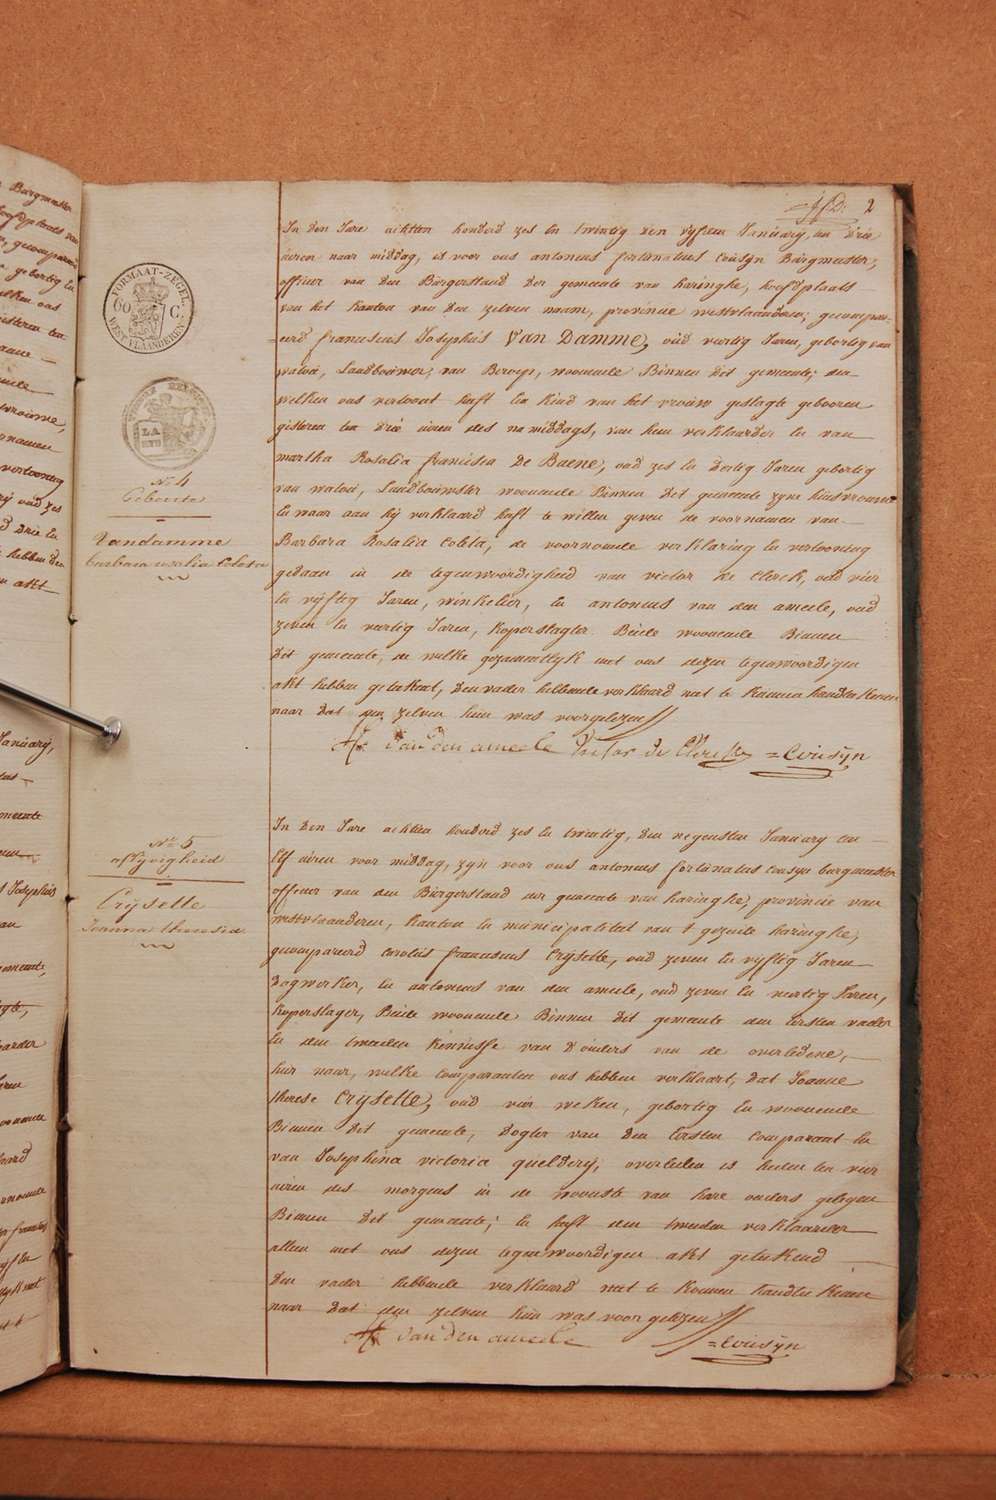 2
FORMAAT-ZEGEL
60 C.
WEST VLAANDEREN
In den Jare achtten honderd zes en twintig den vyfden January, ten drie
uiren naar middag, is voor ons antonius fortunatus Cousyn Burgmeester,
officier van den Burgerstand der gemeente van haringhe, hoofdplaats
van het kanton van den zelven naam, provincie westvlaanderen; gecompar-
eerd franciscus Josephus Van Damme, oud veertig Jaren, gebortig van
watou, Landbouwer, van Beroep, woonende Binnen dit gemeente; den
welken ons vertoont heeft een kind van het vrouw geslagte gebooren
gisteren ten drie uiren des namiddags, van hem verklaarder en van
martha Rosalia francisca De Baene, oud zes en dertig Jaren gebortig
van watou, Landbouwster woonende Binnen dit gemeente zyne huisvrouw
en waar aan hij verklaard heeft te willen geven de voornamen van
Barbara Rosalia Coleta, de voornoemde verklaring en vertooning
gedaan in de tegenwoordigheid van victor de Clerck, oud vier
en vyftig Jaren, winkelier, en antonius van den ameele, oud
zeven en veertig Jaren, koperslager Beide woonende Binnen
dit gemeente, de welke gezamentlyk met ons dezen tegenwoordigen
akt hebben geteekent, den vader hebbende verklaard niet te konnen handteekenen
naar dat den zelven hun was voorgelezen
Van den ameele Victor de Clerck Cousyn
N° 4
Geboorte
Vandamme
barbara rosalia Coleta
In den Jare achtten honderd zes en twintig, den negensten January ten
elf uiren voor middag, zyn voor ons antonius fortunatus Cousyn burgmeester
officier van den Burgerstand der gemeente van haringhe, provincie van
westvlaanderen, kanton en municipaliteit van 't gezeide haringhe,
gecompareerd carolus franciscus Cryselle, oud zeven en vyftig Jaren
dagwerker, en antonius van den ameele, oud zeven en veertig Jaren,
koperslager, Beide woonende Binnen dit gemeente den eersten vader
en den tweeden kennisse van d'ouders van de overledene,
hier naar, welke comparanten ons hebben verklaart, dat Joanna
therese Cryselle, oud vier weken, gebortig en woonende
Binnen dit gemeente, dogter van den eersten comparant en
van Josephina victoria queldery, overleden is heden ten vier
uiren des morgens in de woonste van hare ouders gelegen
Binnen dit gemeente; en heeft den tweeden verklaarder
alleen met ons dezen tegenwoordigen akt geteekend
den vader hebbende verklaard niet te konnen handteekenen
naar dat den zelven hun was voorgelezen
Van den ameele Cousyn
N° 5
aflyvigheid
Cryselle
Joanna theresia